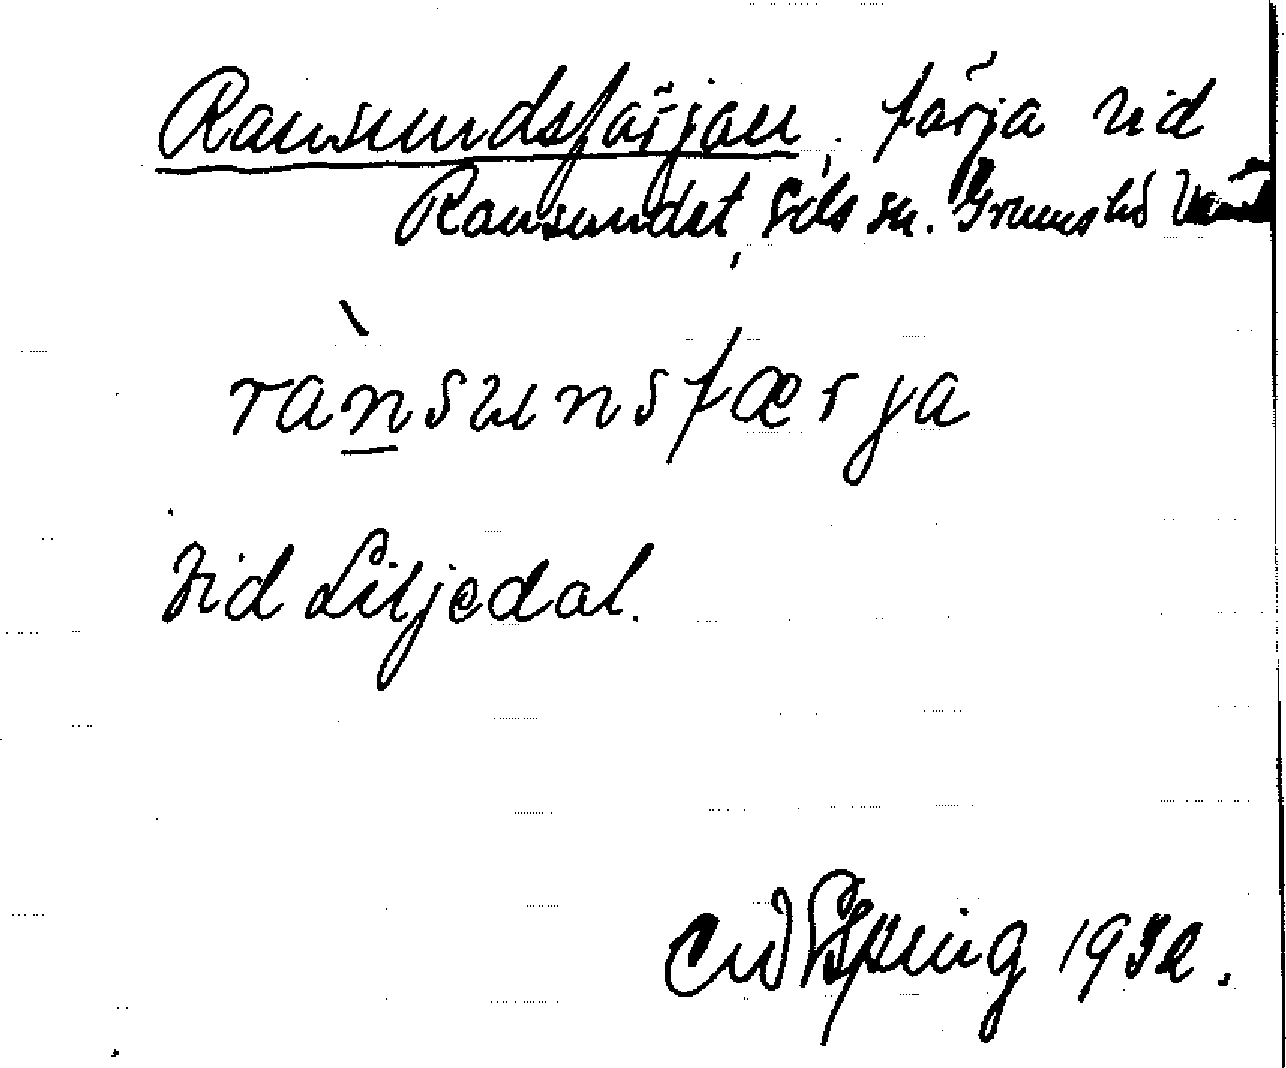 Ransundsfärjan, färja vid
Ransundet, Eds sn. Grums hd
rànsunsfærja
Vid Liljedal.
1932.